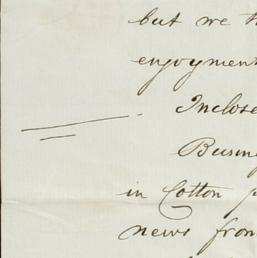 but we
engoyment
Inclose
in Cotton
news from